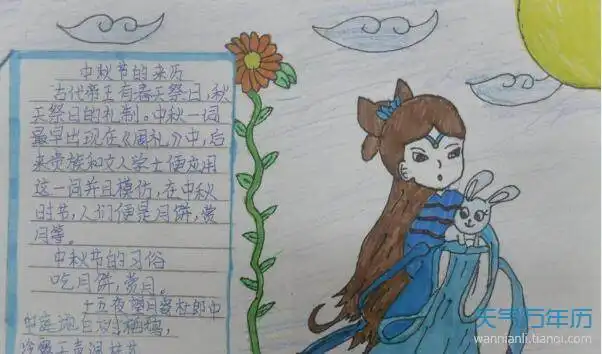 中秋节的来历
古代帝王有春天祭日,秋
天祭日的礼制。中秋一词
最早出现在《周礼》中,后
来贵族和文人学士便应用
这一词并且模仿,在中秋
时节,人们便是月饼,赏
月等。
中秋节的习俗
吃月饼,赏月。
十五夜望月寄杜郎中
中庭地白树栖鸦,
天气万年历
wannianli.tianqi.com